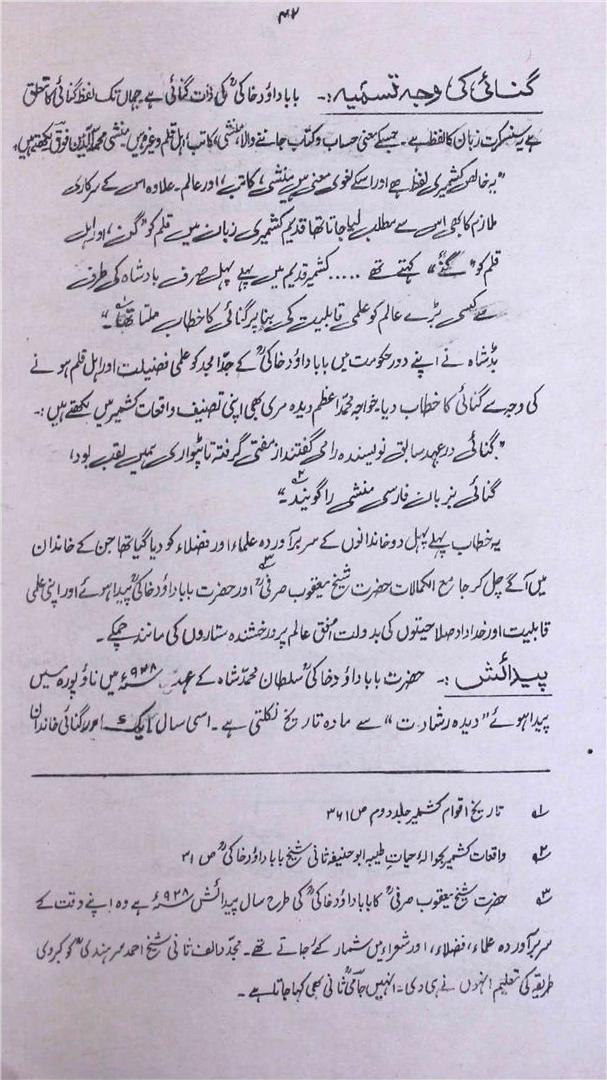 ۴۲
گنائی کی وجہ تسمیہ :۔ بابا داؤد خاکیؒ کی ذات گنائی ہے جہاں تک لفظ گنائی کا تعلق
ہے یہ سنسکرت زبان کا لفظ ہے۔ جسکے معنی حساب و کتاب جاننے والا، منشی، کاتب، اہل قلم وغیرہ ہیں منشی محمد الدین فوق لکھتے ہیں،
"یہ خالص کشمیری لفظ ہے اور اسکے لغوی معنی ہیں منشی، کاتب، اور عالم۔ علاوہ اس کے سرکاری
ملازم کا بھی اس سے مطلب لیا جاتا تھا قدیم کشمیری زبان میں قلم کو "گن، اور اہل
قلم کو " کہتے تھے ..... کشمیر قدیم میں پہلے پہل صرف بادشاہ کی طرف
سے کسی بڑے عالم کو علمی قابلیت کی بنا پر گنائی کا خطاب ملتا تھا۱۔"
بڈشاہ نے اپنے دور حکومت میں بابا داؤد خاکیؒ کے جدّ امجد کو علمی فضیلت اور اہل قلم ہونے
کی وجہ سے گنائی کا خطاب دیا۔ خواجہ محمد اعظم دیدہ مری بھی اپنی تصنیف واقعات کشمیر میں لکھتے ہیں :۔
"گنائی در عہد سابق نویسندہ را می گفتند از مفتی گرفتہ تا پٹواری ہمیں لقب بود،
گنائی بزبان فارسی منشی را گویند۲۔"
یہ خطاب پہلے پہل دو خاندانوں کے سربرآوردہ علماء اور فضلاء کو دیا گیا تھا جن کے خاندان
میں آگے چل کر جامع الکمالات حضرت شیخ یعقوب صرفیؒ۳ اور حضرت بابا داؤد خاکیؒ پیدا ہوئے اور اپنی علمی
قابلیت اور خداداد صلاحیتوں کی بدولت افق عالم پر درخشندہ ستاروں کی مانند چمکے۔
پیدائش :۔ حضرت بابا داؤد خاکیؒ سلطان محمد شاہ کے عہد ۹۲۸ھ میں ناؤپورہ میں
پیدا ہوئے "دیدہ رشادت" سے مادہ تاریخ نکلتی ہے۔ اسی سال ایک اور گنائی خاندان
۱ تاریخ اقوام کشمیر جلد دوم ص ۳۶۱
۲ واقعات کشمیر بحوالہ حیات طیبہ ابو حنیفہ ثانی شیخ بابا داؤد خاکیؒ ص ۳۱
۳ حضرت شیخ یعقوب صرفیؒ کا بابا داؤد خاکیؒ کی طرح سال پیدائش ۹۲۸ھ ہے وہ اپنے وقت کے
سربرآوردہ علماء، فضلاء، اور شعراء میں شمار کئے جاتے تھے۔ مجدد الف ثانی شیخ احمد سرہندیؒ کو کبروی
طریقہ کی تعلیم انہوں نے ہی دی۔ انہیں جامیؒ ثانی بھی کہا جاتا ہے۔